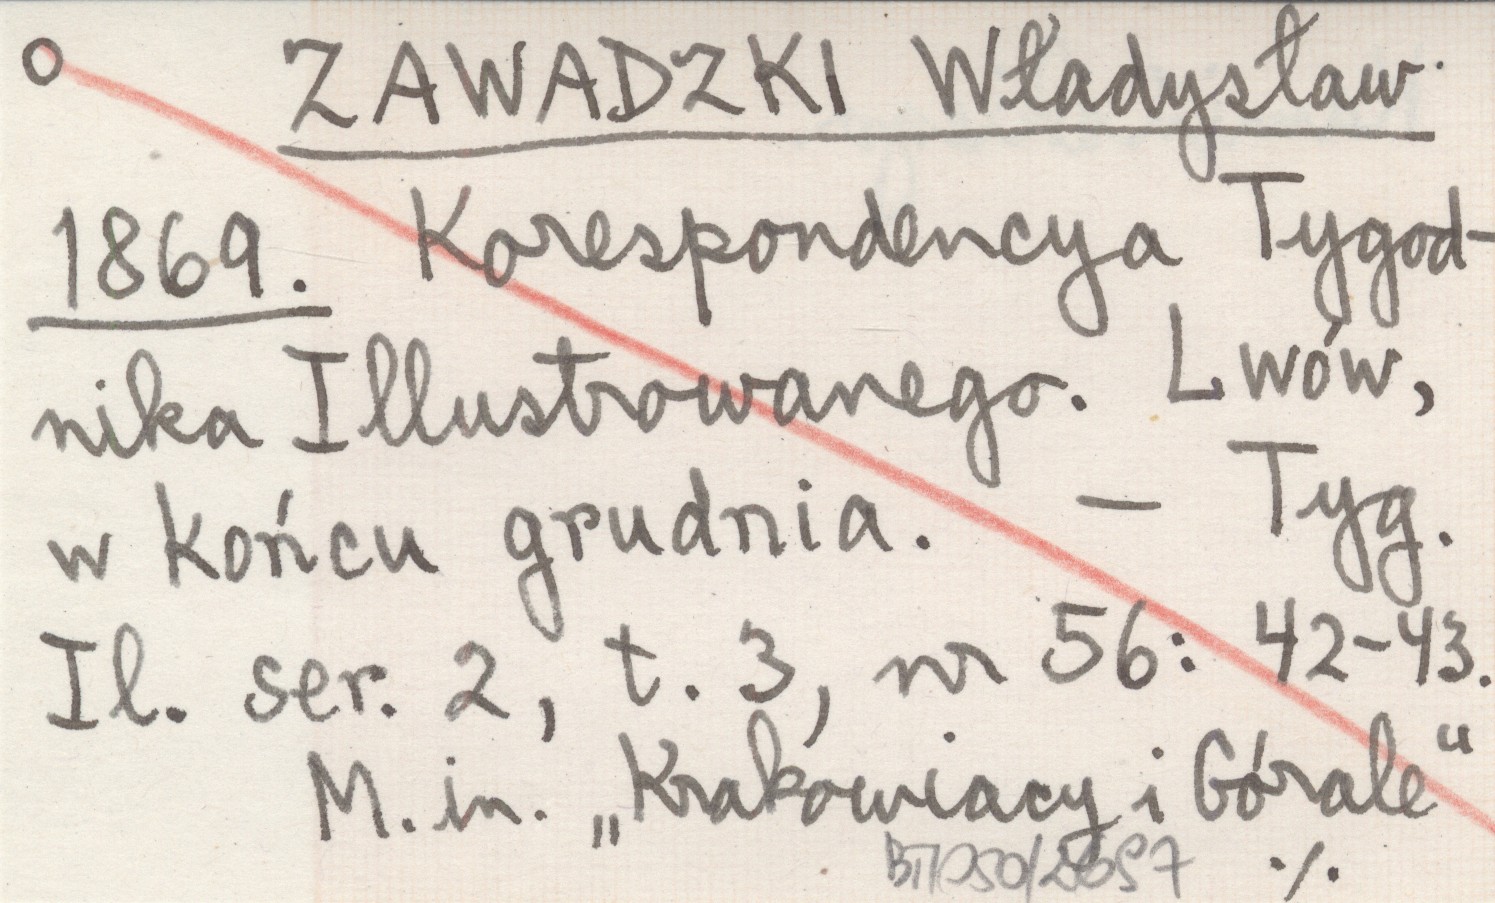 o ZAWADZKI Władysław.
1869. Korespondencya Tygod-
nika Illustrowanego. Lwów,
w końcu grudnia. — Tyg.
Il. ser. 2, t. 3, nr 56: 42-43.
M. in. „Krakowiacy i Górale"
./.